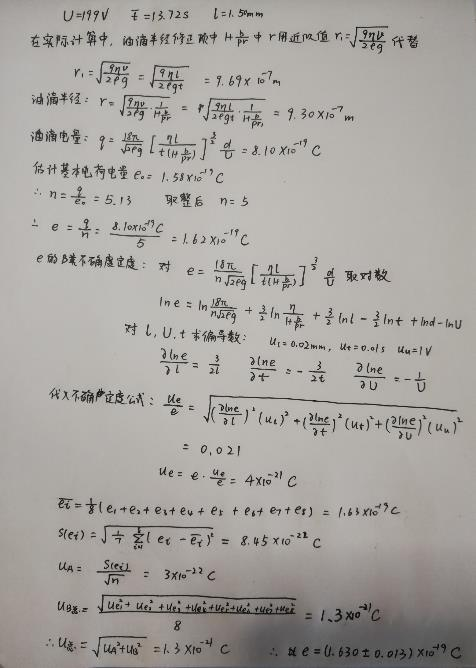 U=199V  t̄=13.72s  l=1.50mm
在实际计算中，油滴半径修正项中 1+b/pr 中 r 用近似值 r₁=√(9ηv/2ρg) 代替
r₁=√(9ηv/2ρg) = √(9ηl/2ρgt) = 9.69×10⁻⁷m
油滴半径: r=√(9ηv/2ρg · 1/(1+b/pr)) = √(9ηl/2ρgt · 1/(1+b/pr₁)) = 9.30×10⁻⁷m
油滴电量: q= 18π/√(2ρg) [ηl/t(1+b/pr)]^(3/2) d/U = 8.10×10⁻¹⁹ C
估计基本电荷电量 e₀= 1.58×10⁻¹⁹ C
∴ n= q/e₀ = 5.13  取整后  n=5
∴ e= q/n = 8.10×10⁻¹⁹C/5 = 1.62×10⁻¹⁹ C
e的B类不确定度: 对 e= 18π/(n√(2ρg)) [ηl/t(1+b/pr)]^(3/2) d/U 取对数
lne = ln 18π/(n√(2ρg)) + 3/2 ln η/(1+b/pr) + 3/2 lnl - 3/2 lnt + lnd - lnU
对 l, U, t 求偏导数: u_l=0.02mm, u_t=0.01s u_u=1V
∂lne/∂l = 3/2l  ∂lne/∂t = -3/2t  ∂lne/∂U = -1/U
代入不确定度公式: u_e/e = √((∂lne/∂l)²(u_l)²+(∂lne/∂t)²(u_t)²+(∂lne/∂U)²(u_u)²)
= 0.021
u_e = e · u_e/e = 4×10⁻²¹ C
e̅ᵢ = 1/8 (e₁+e₂+e₃+e₄+e₅+e₆+e₇+e₈) = 1.63×10⁻¹⁹ C
S(eᵢ) = √(1/7 Σ(eᵢ - e̅ᵢ)²) = 8.45×10⁻²² C
u_A = S(eᵢ)/√n = 3×10⁻²² C
u_B总 = √(u_e₁²+u_e₂²+u_e₃²+u_e₄²+u_e₅²+u_e₆²+u_e₇²+u_e₈²)/8 = 1.3×10⁻²¹ C
∴ u总 = √(u_A²+u_B²) = 1.3×10⁻²¹ C  ∴ e=(1.630±0.013)×10⁻¹⁹ C